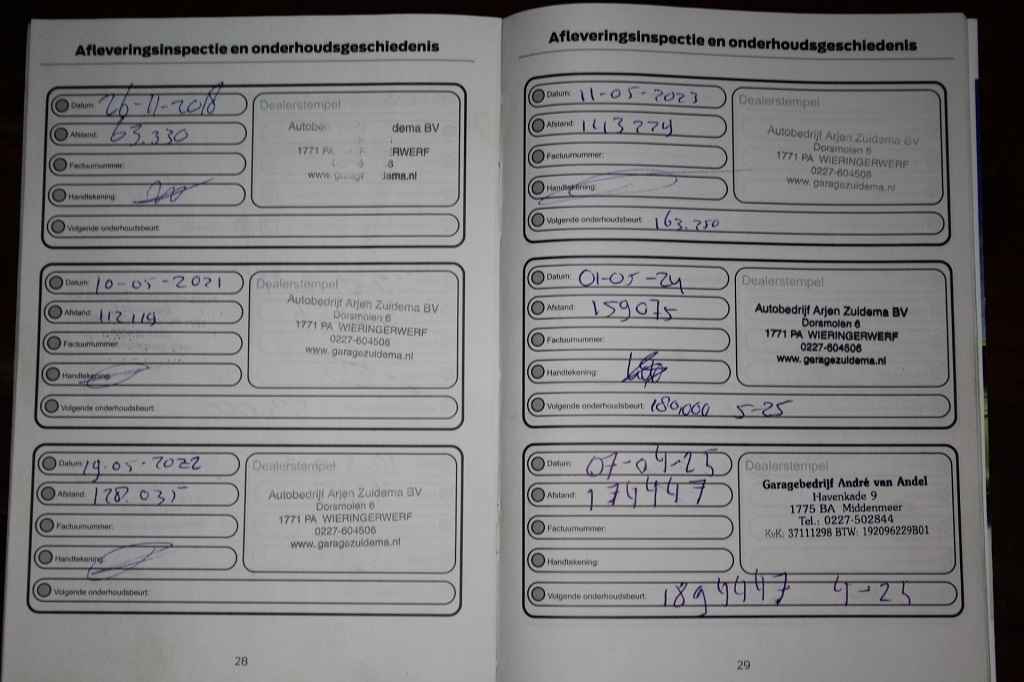 Afleveringsinspectie en onderhoudsgeschiedenis
Datum: 26-11-2018
Afstand: 63.330
Factuurnummer:
Handtekening:
Volgende onderhoudsbeurt:
Dealerstempel
Autobe dema BV
1771 PA RWERF
www.garage dema.nl
Datum: 10-05-2021
Afstand: 112119
Factuurnummer:
Handtekening:
Volgende onderhoudsbeurt:
Dealerstempel
Autobedrijf Arjen Zuidema BV
Dorsmolen 6
1771 PA WIERINGERWERF
0227-604506
www.garagezuidema.nl
Datum: 19-05-2022
Afstand: 128.035
Factuurnummer:
Handtekening:
Volgende onderhoudsbeurt:
Dealerstempel
Autobedrijf Arjen Zuidema BV
Dorsmolen 6
1771 PA WIERINGERWERF
0227-604506
www.garagezuidema.nl
28
Afleveringsinspectie en onderhoudsgeschiedenis
Datum: 11-05-2023
Afstand: 143279
Factuurnummer:
Handtekening:
Volgende onderhoudsbeurt: 163.250
Dealerstempel
Autobedrijf Arjen Zuidema BV
Dorsmolen 6
1771 PA WIERINGERWERF
0227-604506
www.garagezuidema.nl
Datum: 01-05-24
Afstand: 159075
Factuurnummer:
Handtekening:
Volgende onderhoudsbeurt: 180,000 5-25
Dealerstempel
Autobedrijf Arjen Zuidema BV
Dorsmolen 6
1771 PA WIERINGERWERF
0227-604506
www.garagezuidema.nl
Datum: 07-04-25
Afstand: 174447
Factuurnummer:
Handtekening:
Volgende onderhoudsbeurt: 1894447 4-25
Dealerstempel
Garagebedrijf André van Andel
Havenkade 9
1775 BA Middenmeer
Tel.: 0227-502844
KvK: 37111298 BTW: 192096229B01
29